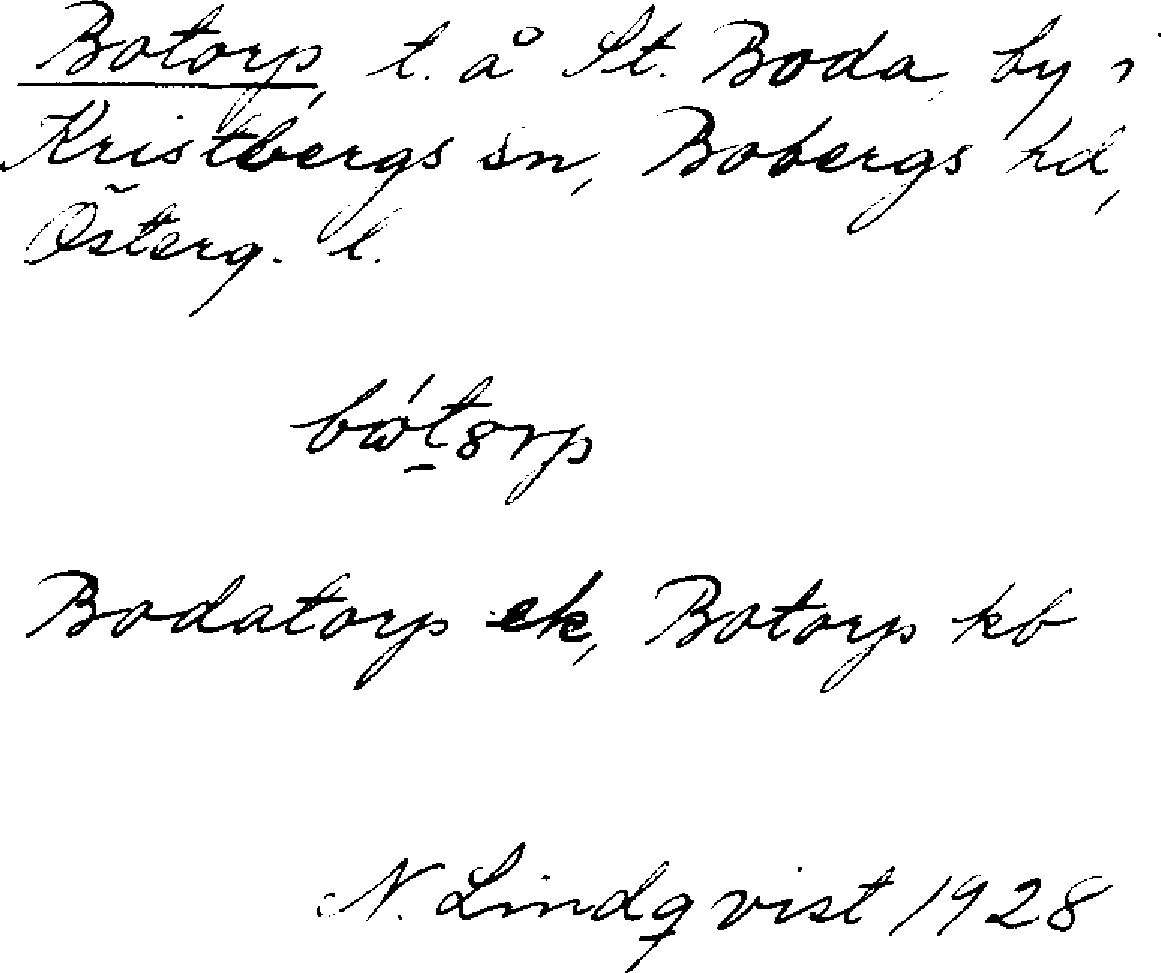 Botorp, t. å St. Boda, by i
Kristbergs sn, Bobergs hd,
Österg. l.
Bodatorp ek, Botorp kb
N. Lindqvist 1928